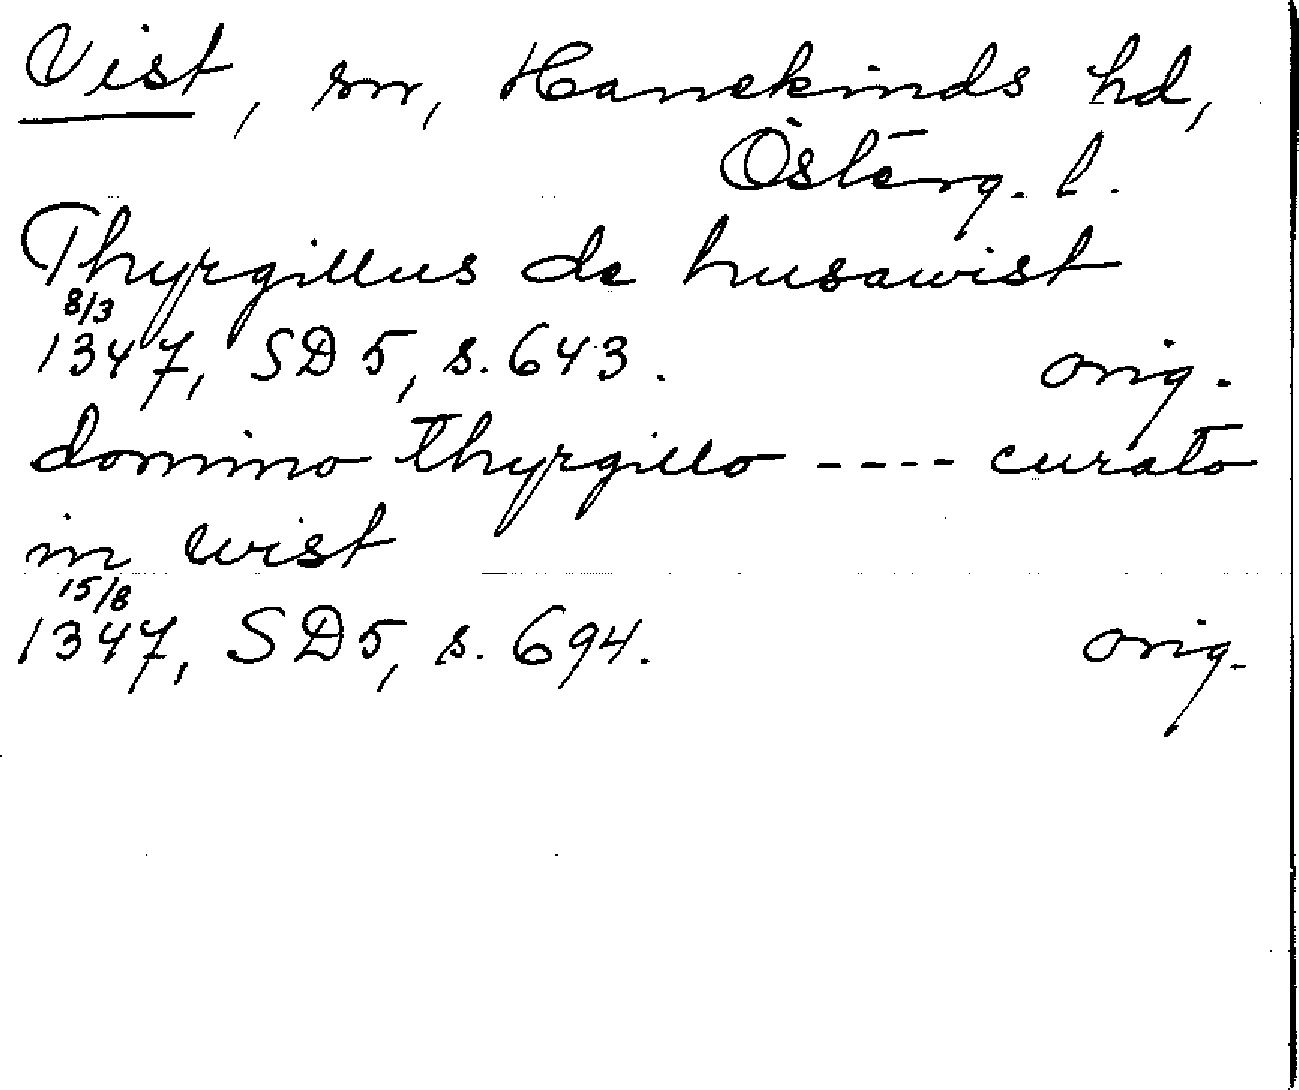 Vist, sn, Hanekinds hd,
Österg. l.
Thyrgillus de husawist
8/3
1347, SD 5, s. 643. orig.
domino thyrgillo ---- curato
in wist
15/8
1347, SD 5, s. 694. orig.